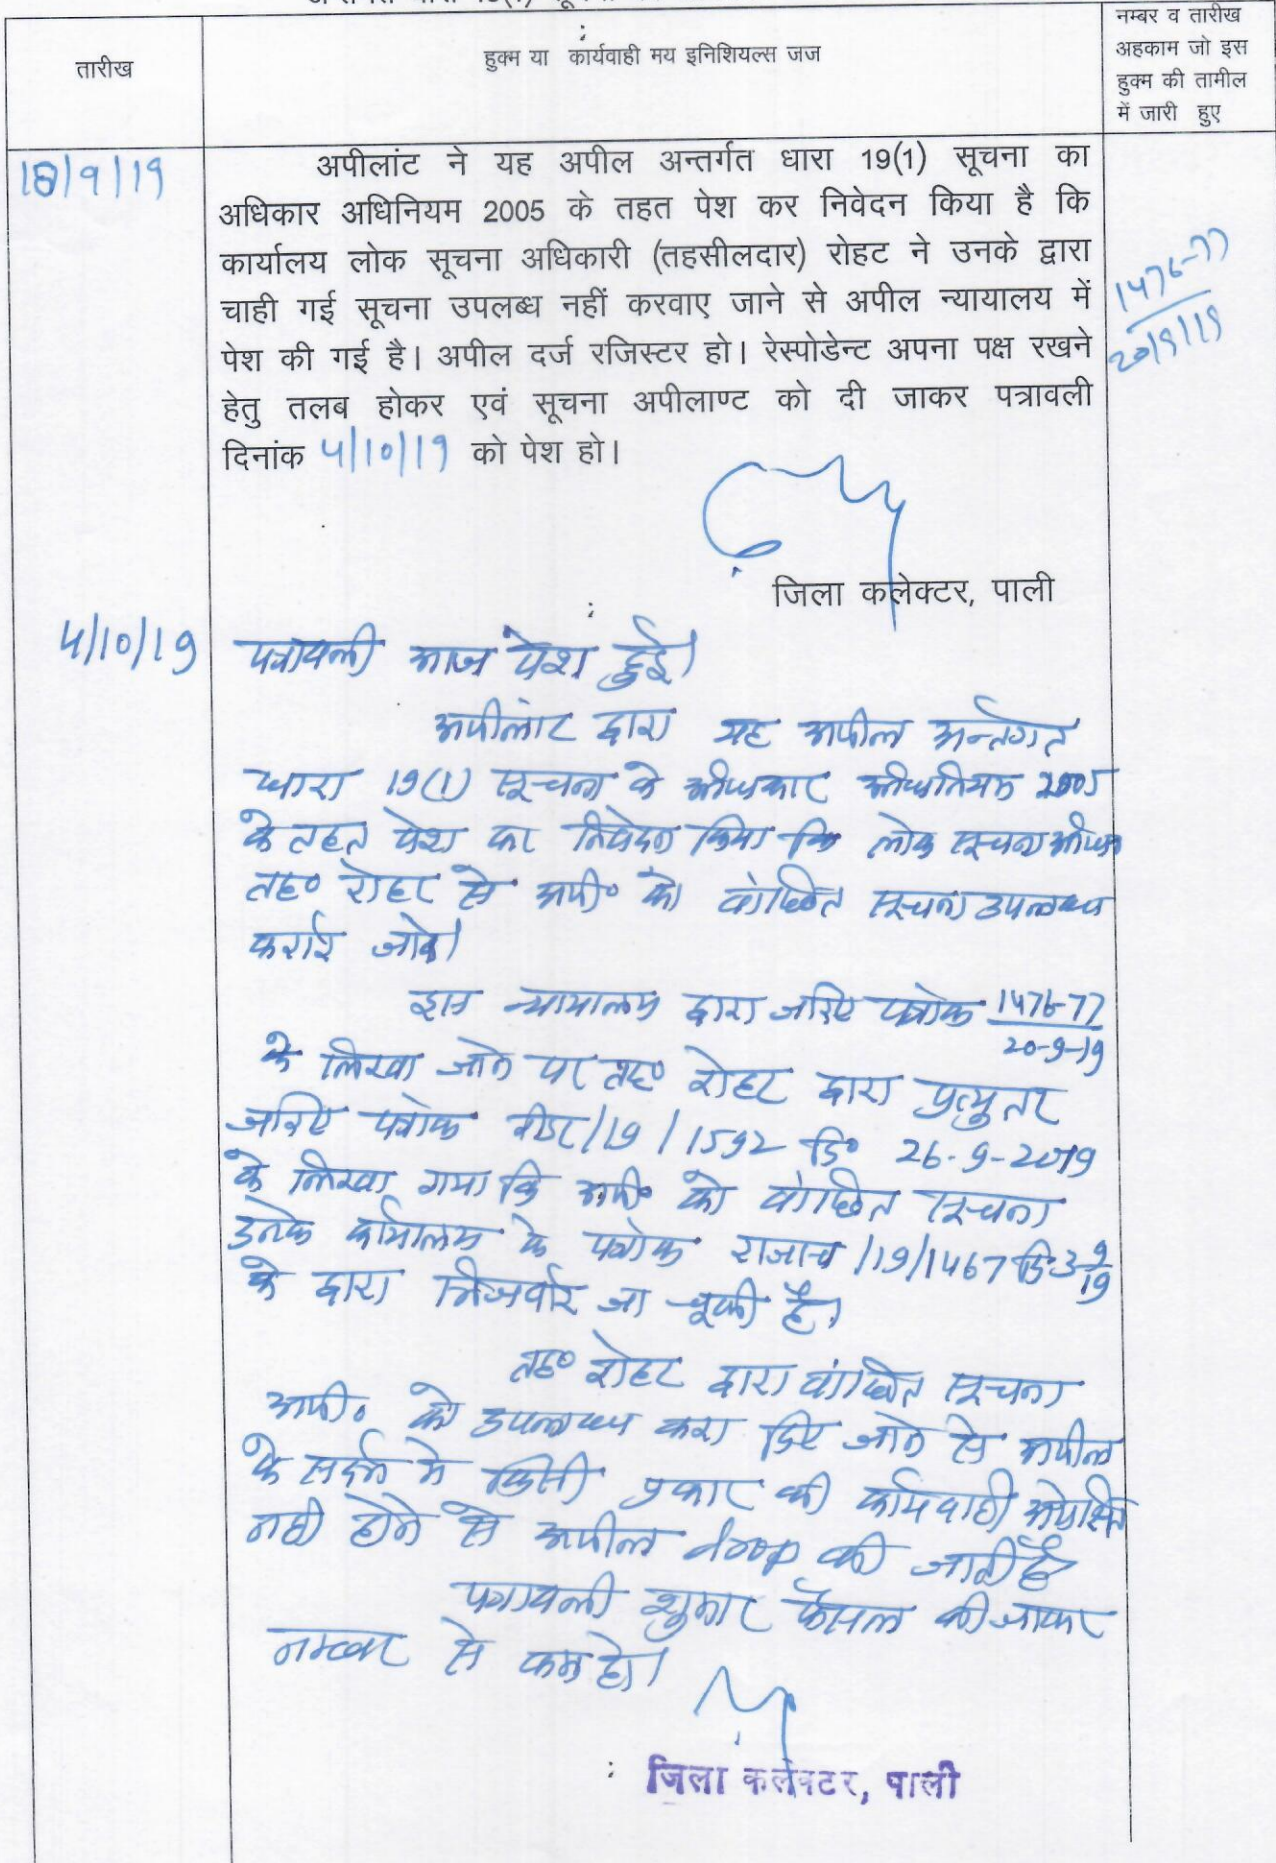 तारीख
हुक्म या कार्यवाही मय इनिशियल्स जज
नम्बर व तारीख
अहकाम जो इस
हुक्म की तामील
में जारी हुए
18/9/19
अपीलांट ने यह अपील अन्तर्गत धारा 19(1) सूचना का
अधिकार अधिनियम 2005 के तहत पेश कर निवेदन किया है कि
कार्यालय लोक सूचना अधिकारी (तहसीलदार) रोहट ने उनके द्वारा
चाही गई सूचना उपलब्ध नहीं करवाए जाने से अपील न्यायालय में
पेश की गई है। अपील दर्ज रजिस्टर हो। रेस्पोडेन्ट अपना पक्ष रखने
हेतु तलब होकर एवं सूचना अपीलाण्ट को दी जाकर पत्रावली
दिनांक 4/10/19 को पेश हो।
1476-77
20/9/19
जिला कलेक्टर, पाली
4/10/19 पत्रावली आज पेश हुई।
अपीलांट द्वारा यह अपील अर्न्तगत
धारा 19(1) सूचना के अधिकार अधिनियम 2005
के तहत पेश कर निवेदन किया कि लोक सूचना अधि०
तह० रोहट से अपी० को वांछित सूचना उपलब्ध
कराई जावे।
इस न्यायालय द्वारा जरिए पत्रांक 1476-77
20-9-19
के लिखा जाने पर तह० रोहट द्वारा प्रत्युतर
जरिए पत्रांक रीडर/19/1592 दि० 26-9-2019
के लिखा गया कि अपी० को वांछित सूचना
उनके कार्यालय के पत्रांक राजाच/19/1467 दि. 3-9/19
के द्वारा भिजवाई जा चूकी है।
तह० रोहट द्वारा वांछित सूचना
अपी० को उपलब्ध करा दिए जाने से अपील
के सर्दभ मे किसी प्रकार की कार्यवाही अपेक्षित
नही होने से अपील drop की जाती है
पत्रावली शुमार फैसल की जाकर
नम्बर से कम हो।
जिला कलेक्टर, पाली